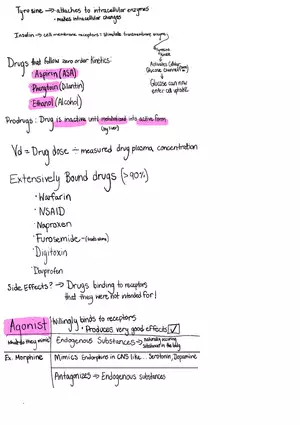 Tyrosine → attaches to intracellular enzymes
• makes intracellular changes
Insulin → cell membrane receptors: stimulate transmembrane enzyme:
Tyrosine
Kinase
Activates (other
Glucose can now
enter cell uptake
Drugs that follow zero order kinetics:
• Aspirin (ASA)
• Phenytoin (Dilantin)
• Ethanol (Alcohol)
Prodrugs: Drug is inactive until metabolized into active form
(by liver)
Vd = Drug dose ÷ measured drug plasma concentration
Extensively Bound drugs (>90%)
• Warfarin
• NSAID
• Naproxen
• Furosemide
• Digitoxin
• Ibuprofen
Side Effects? → Drugs binding to receptors
that they were not intended for!
Agonist
Willingly binds to receptors
• Produces very good effects ✓
What do they mimic?
Endogenous Substances → naturally occuring
substances in the body
Ex. Morphine
Mimics Endorphins in CNS like... Serotonin, Dopamine
Antagonizes → Endogenous substances